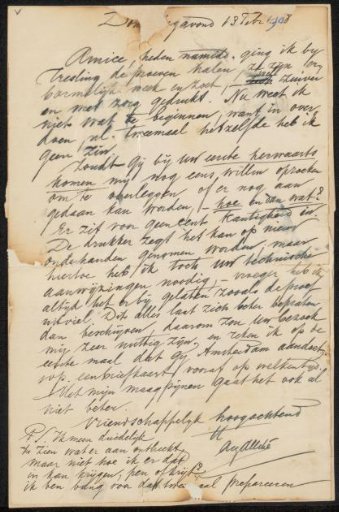 Donderdagavond 13 Febr 1908
Amice, heden namid. ging ik bij
Vresling de proeven halen, ze zijn er
barmelijk week en zoet, zuiver
en met zorg gedrukt. Nu weet ik
niet wat te beginnen, want in over
doen, nl. tweemaal hetzelfde heb ik
geen zin.
Zoudt Gij bij uw eerste herwaarts
komen mij nog eens willen opzoeken
om te overleggen of er nog aan
gedaan kan worden, — hoe en dan wat?
Er zit voor geen cent kantigheid in.
De drukker zegt het kan op meer
onderhanden genomen worden, maar
hiertoe heb ik toch uw technische
aanwijzingen noodig, — vroeger heb ik
altijd het er bij gelaten zooals de proef
uitviel. Dit alles laat zich beter bepraten
dan beschrijven, daarom zou uw bezoek
mij zeer nuttig zijn, en reken ik op de
eerste maal dat gij Amsterdam aandoet
vooraf op
Met mijn maagpijnen gaat het ook al
niet beter.
Vriendschappelijk hoogachtend
P.S. Ik meen duidelijk
te zien wat er aan ontbreekt,
maar niet hoe ik er dat
in kan krijgen, pen of krijt?
ik ben bang voor dat prepareeren